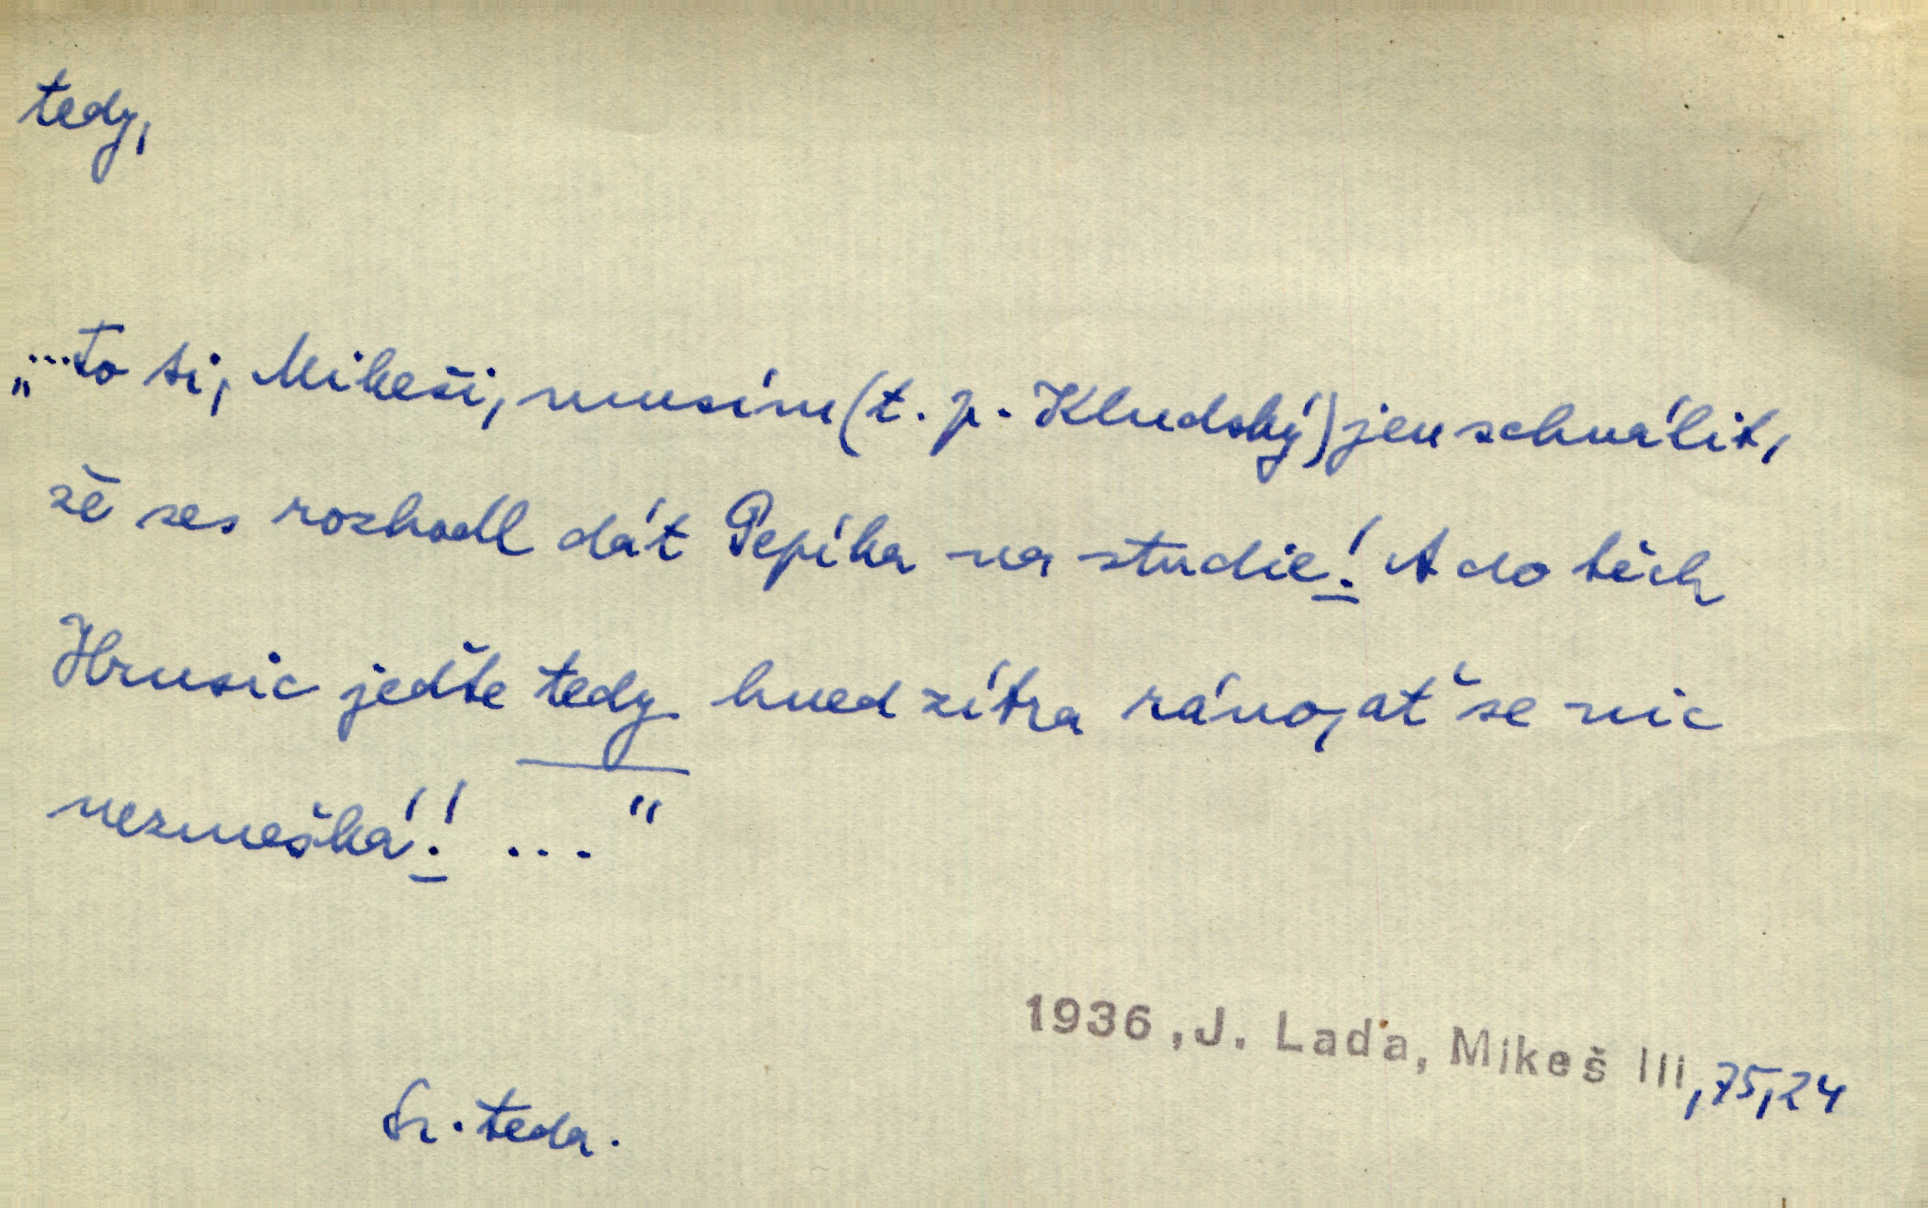 tedy,
„...to ti, Mikeši, musím (t. p. Kludský) jen schválit,
že ses rozhodl dát Pepíka na studie! A do těch
Hrusic jeďte tedy hned zítra ráno, ať se nic
nezmešká! ! ..."
1936 ,J. Lada, Mikeš III,75,24
Sr. teda.